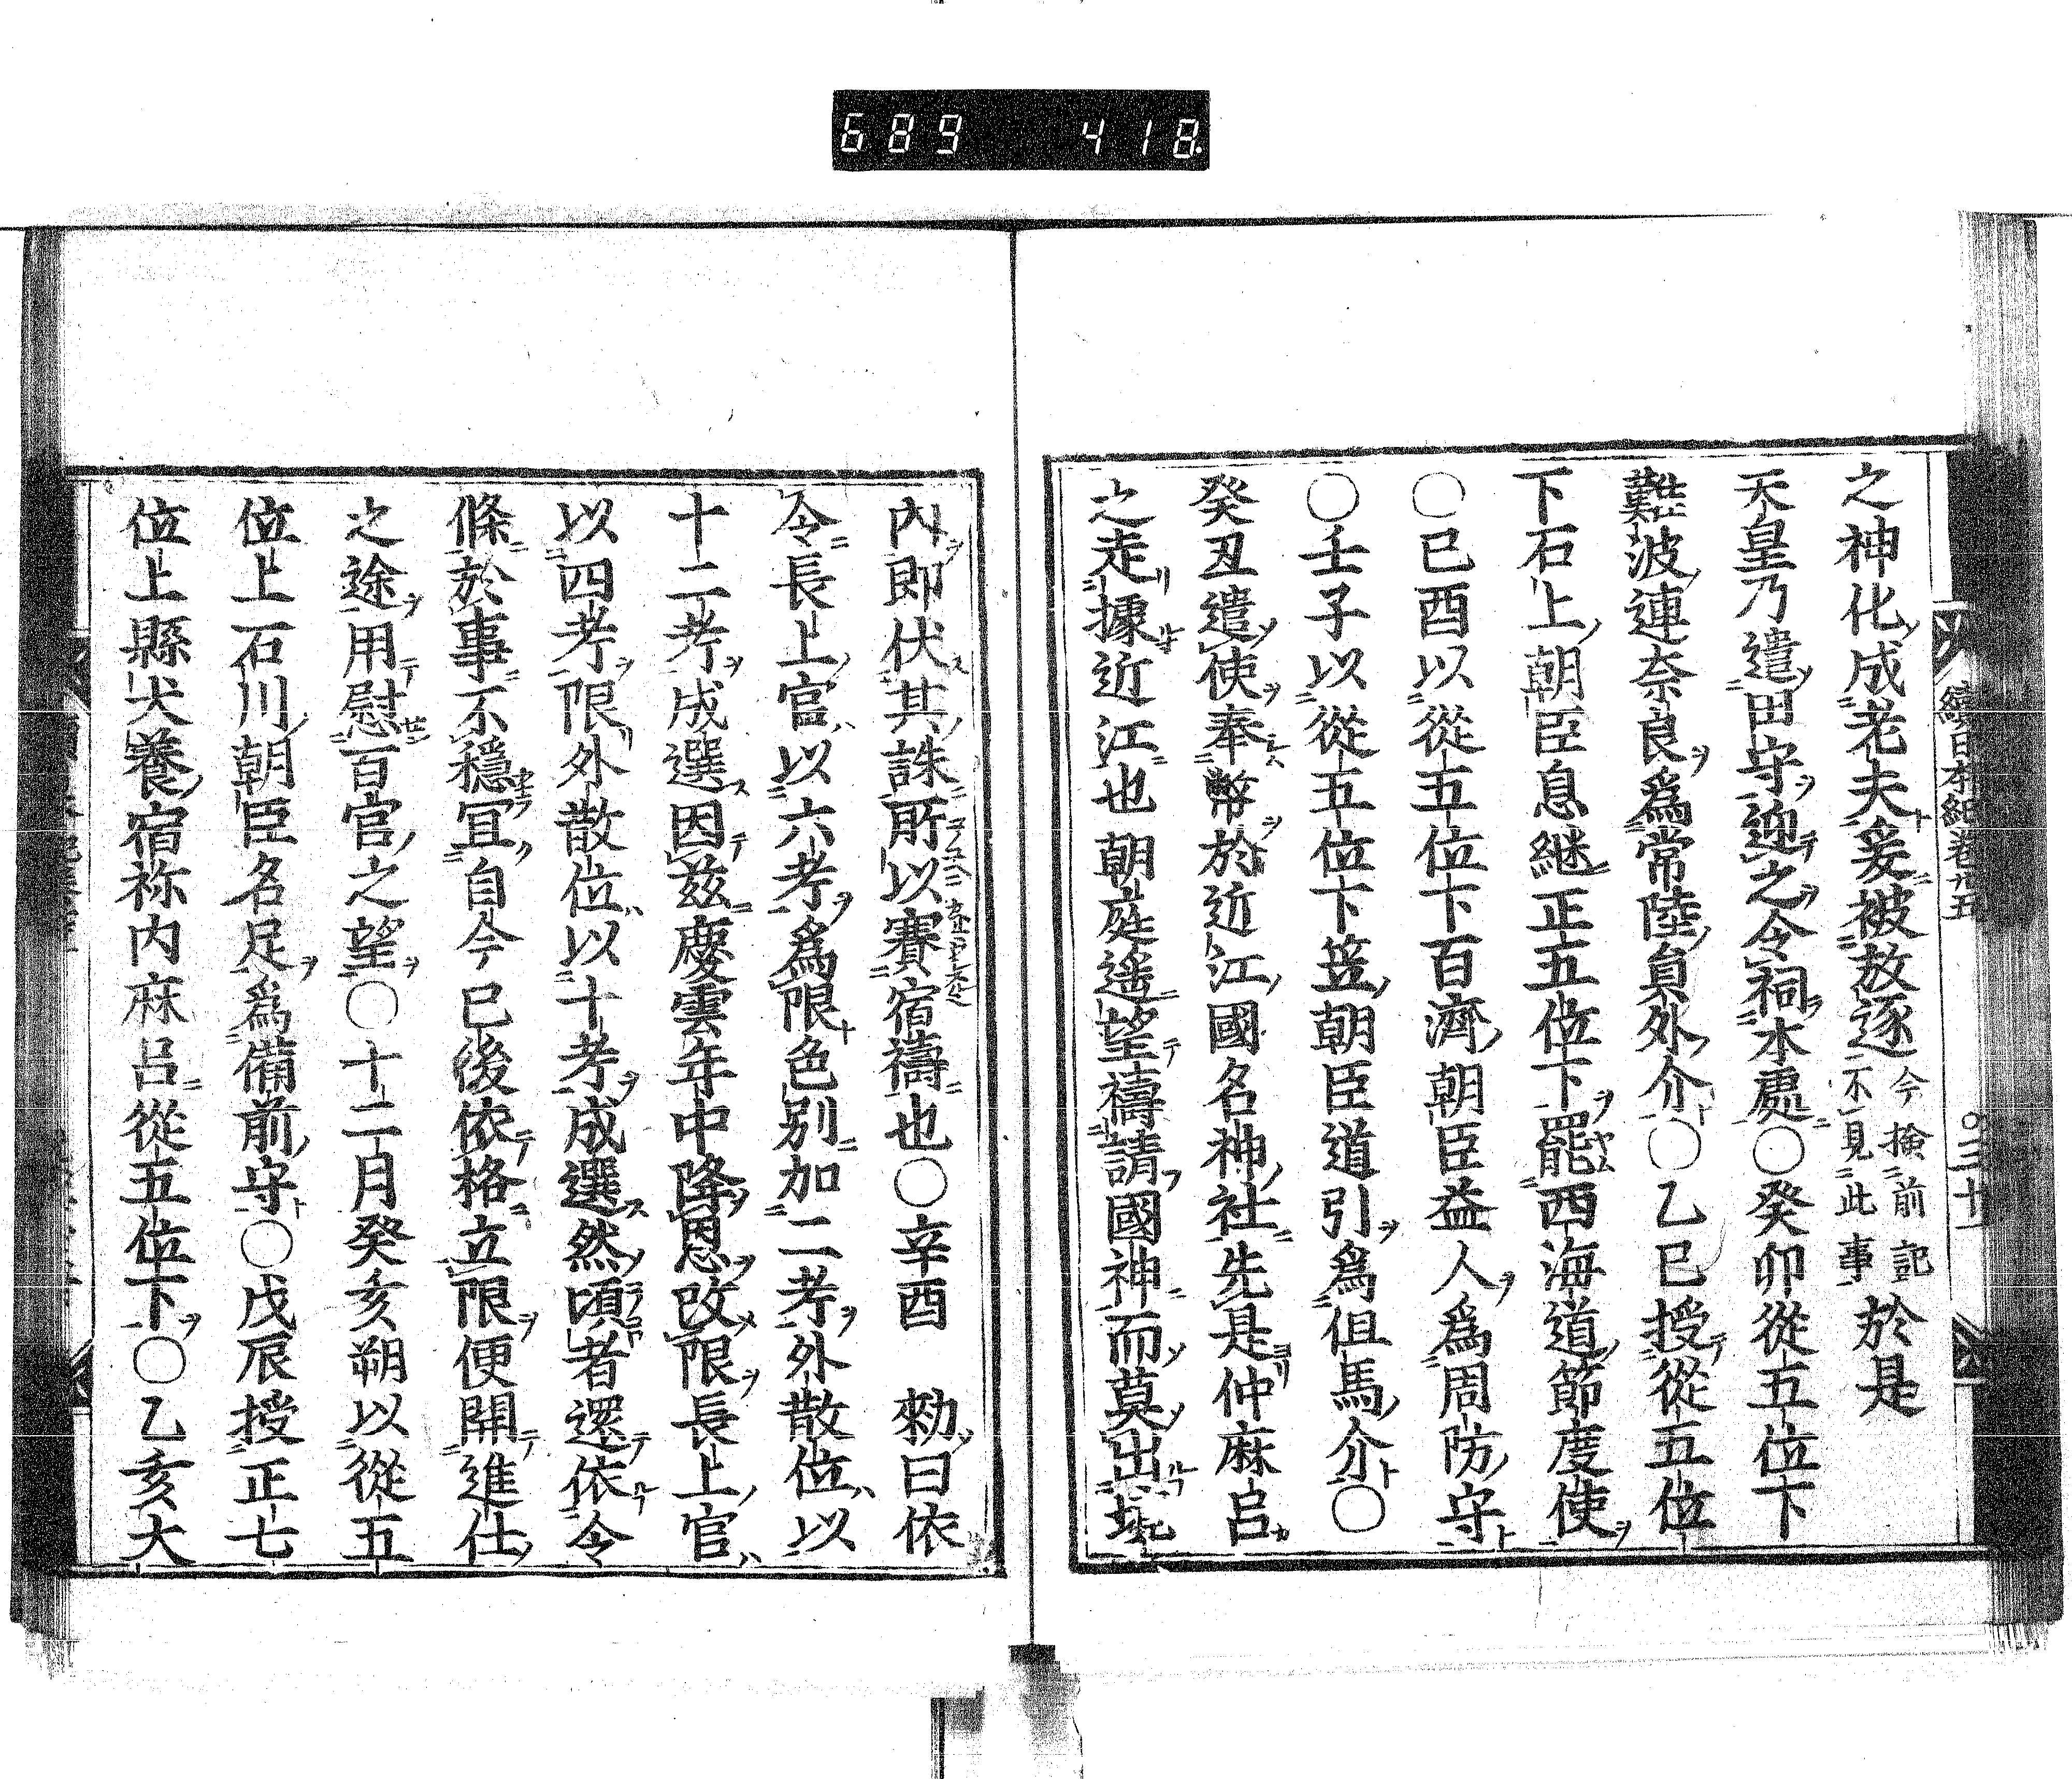 689 418.
續日本紀卷廿五
三十一
之神化成老夫爰被放逐今撿前記不見此事於是
天皇乃遣田守迎之令祠本處○癸卯從五位下
難波連奈良爲常陸員外介○乙巳授從五位
下石上朝臣息継正五位下罷西海道節度使
○己酉以從五位下百濟朝臣益人爲周防守
○壬子以從五位下笠朝臣道引爲但馬介○
癸丑遣使奉幣於近江國名神社先是仲麻呂
之走據近江也朝庭遥望禱請國神而莫出境
內即伏其誅所以賽宿禱也○辛酉 勅曰依
令長上官以六考爲限色別加二考外散位以
十二考成選因兹慶雲年中降恩改限長上官
以四考限外散位以十考成選然頃者還依令
條於事不穩冝自今已後依格立限便開進仕
之途用慰百官之望○十二月癸亥朔以從五
位上石川朝臣名足爲備前守○戊辰授正七
位上縣犬養宿祢内麻呂從五位下○乙亥大